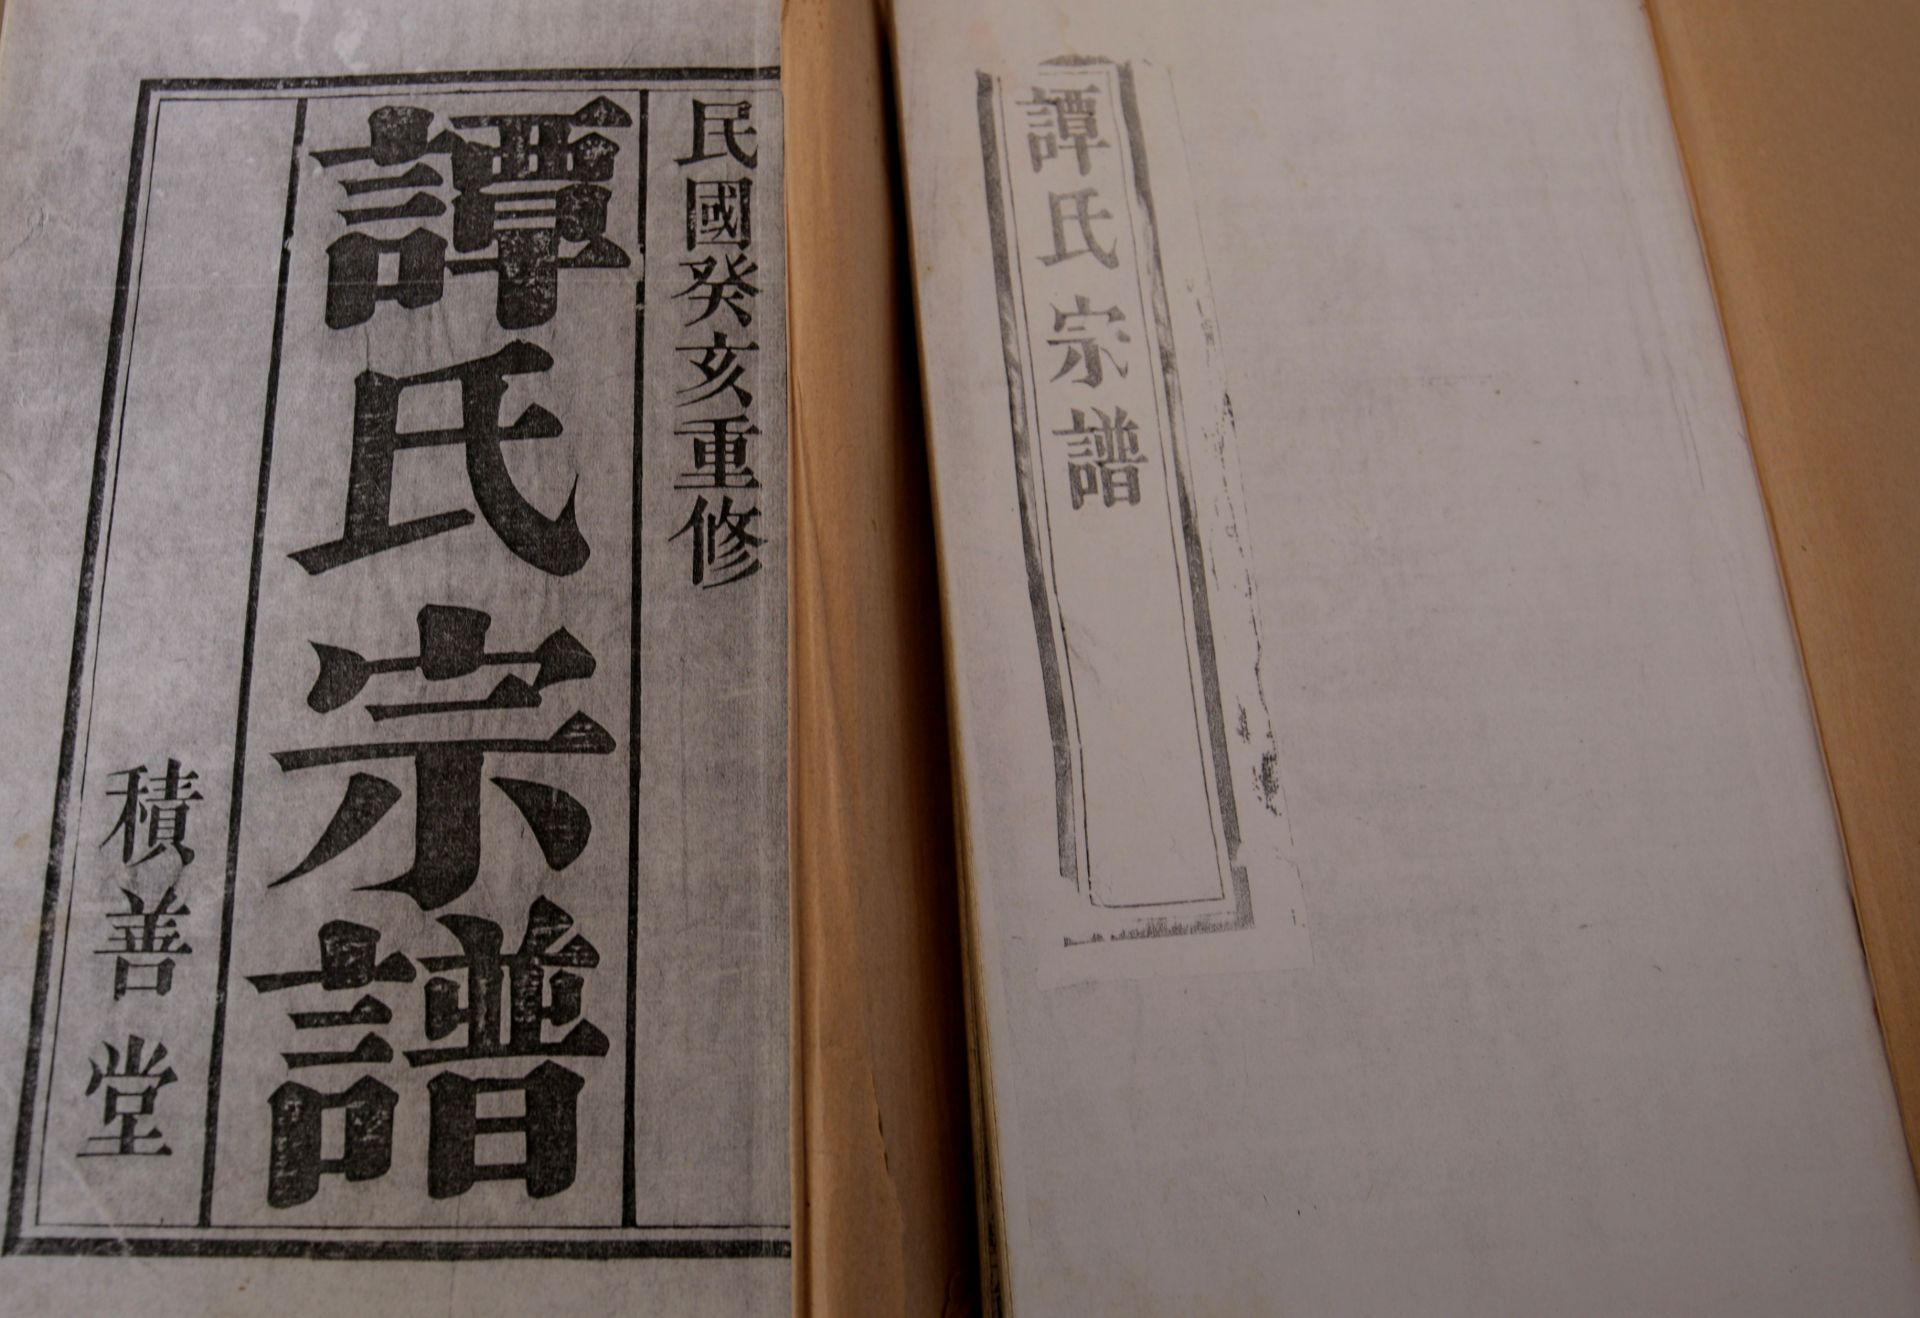 民國癸亥重修
譚氏宗譜
積善堂
譚氏宗譜